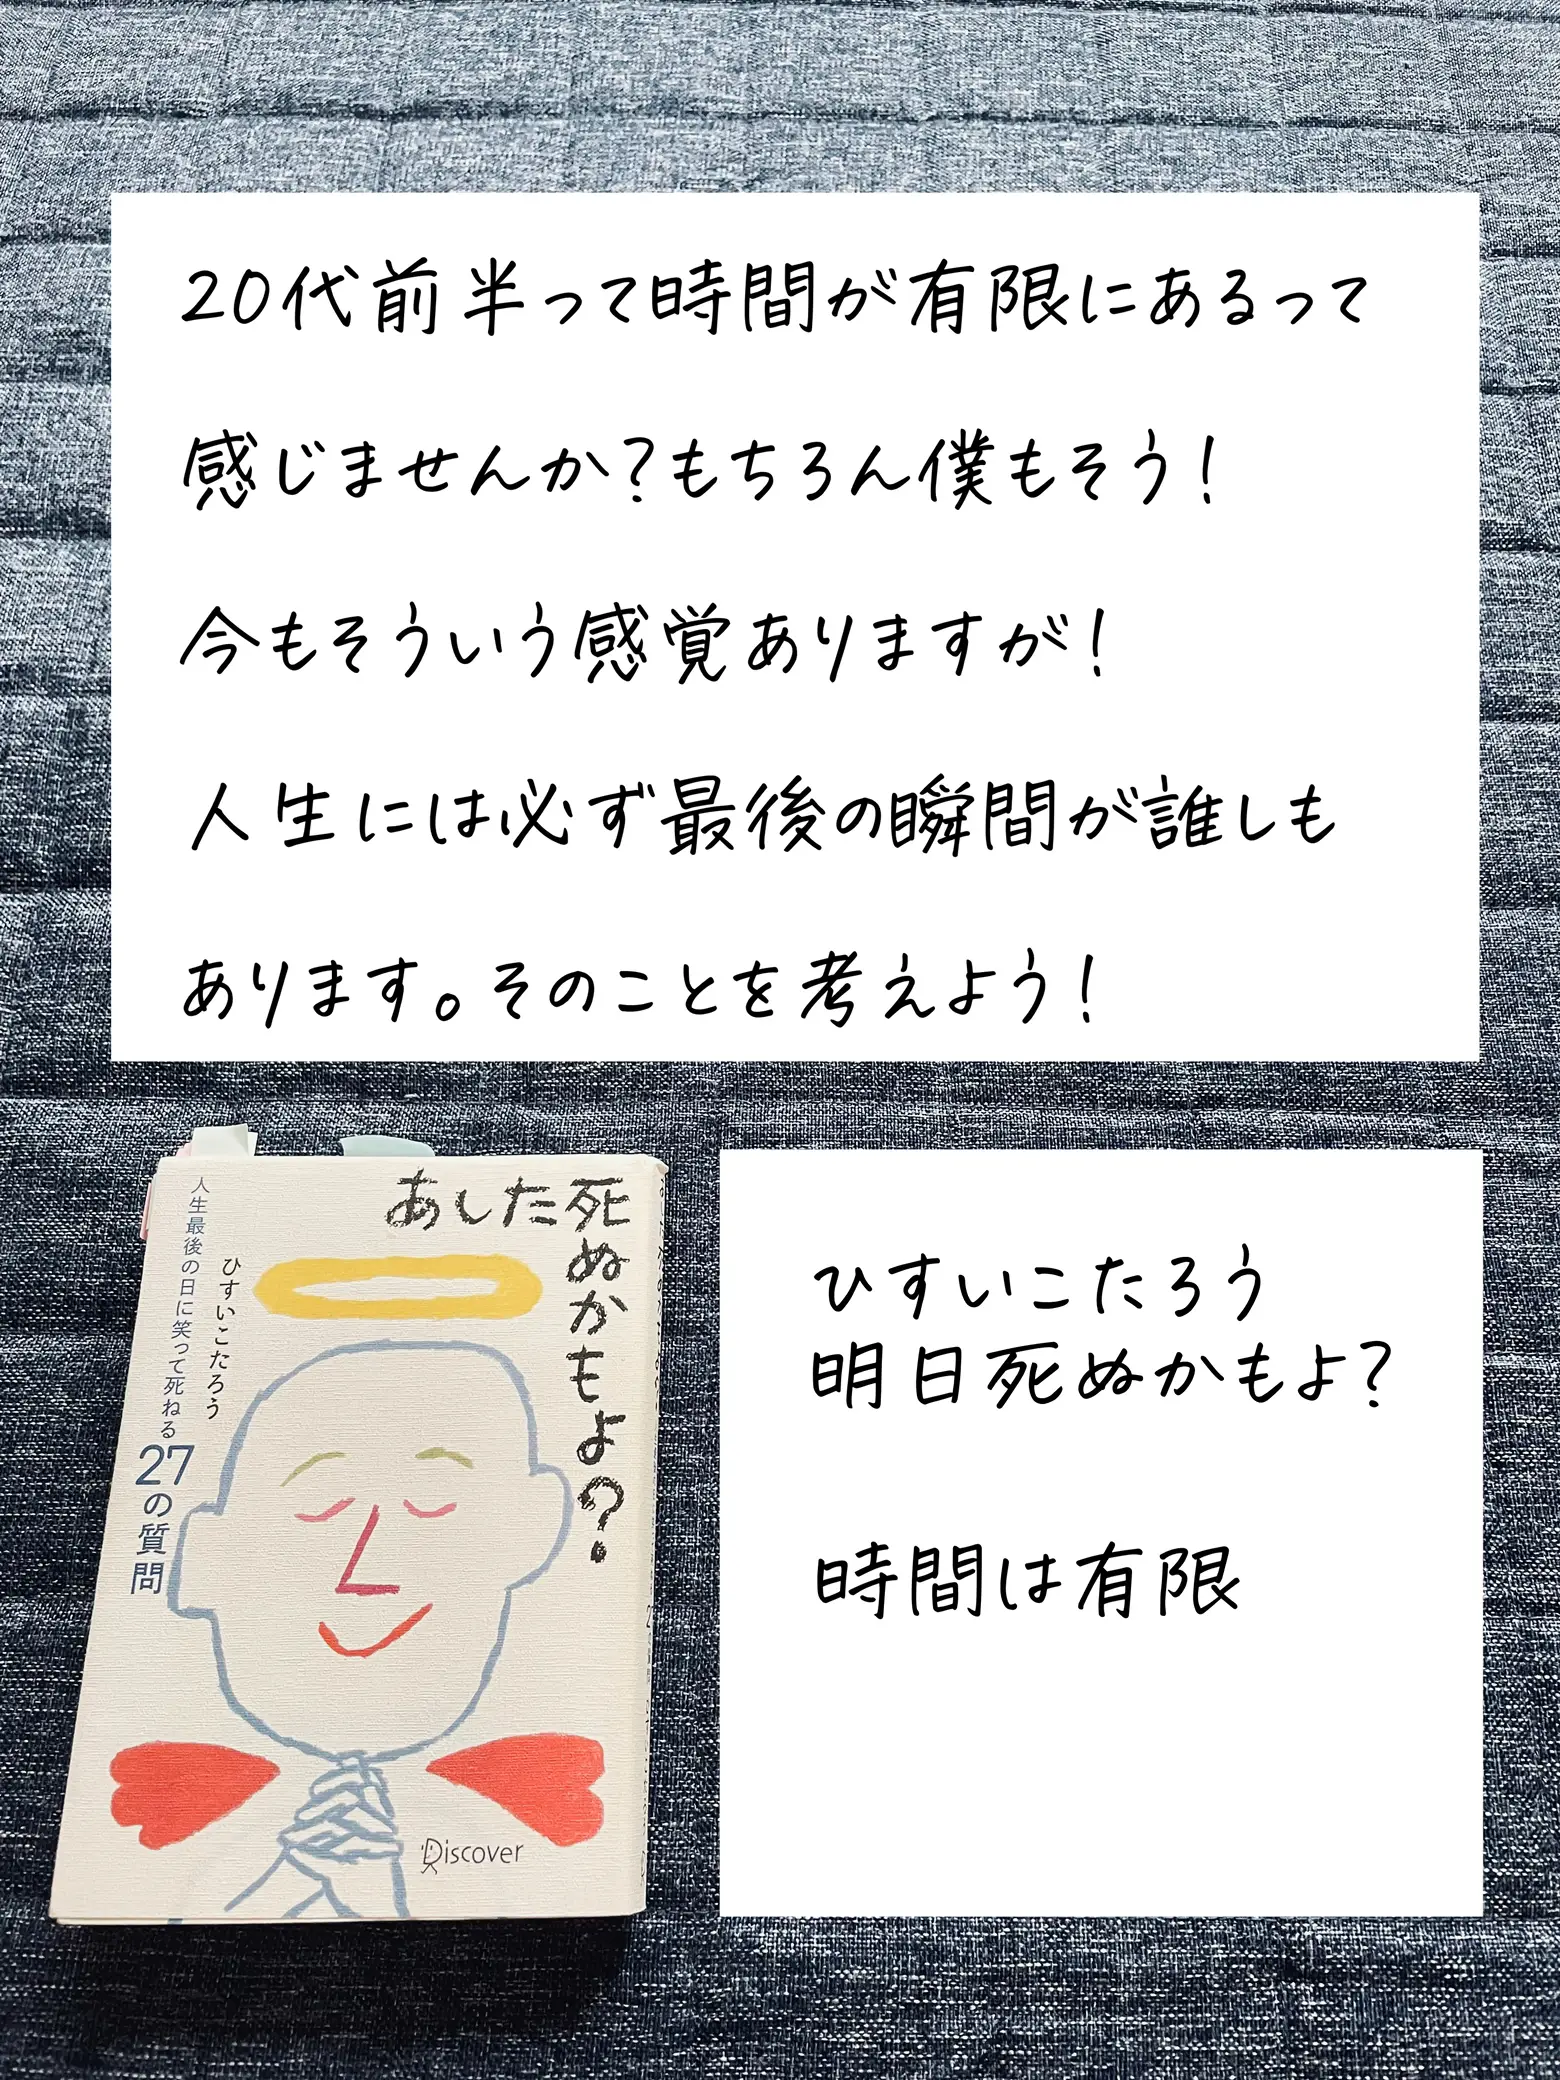 20代前半って時間が有限にあるって
感じませんか?もちろん僕もそう!
今もそういう感覚ありますが!
人生には必ず最後の瞬間が誰しも
あります。そのことを考えよう!
あした死
ぬかもよ?
人生最後の日に笑って死ねる
27の質問
ひすいこたろう
Discover
ひすいこたろう
明日死ぬかもよ?
時間は有限